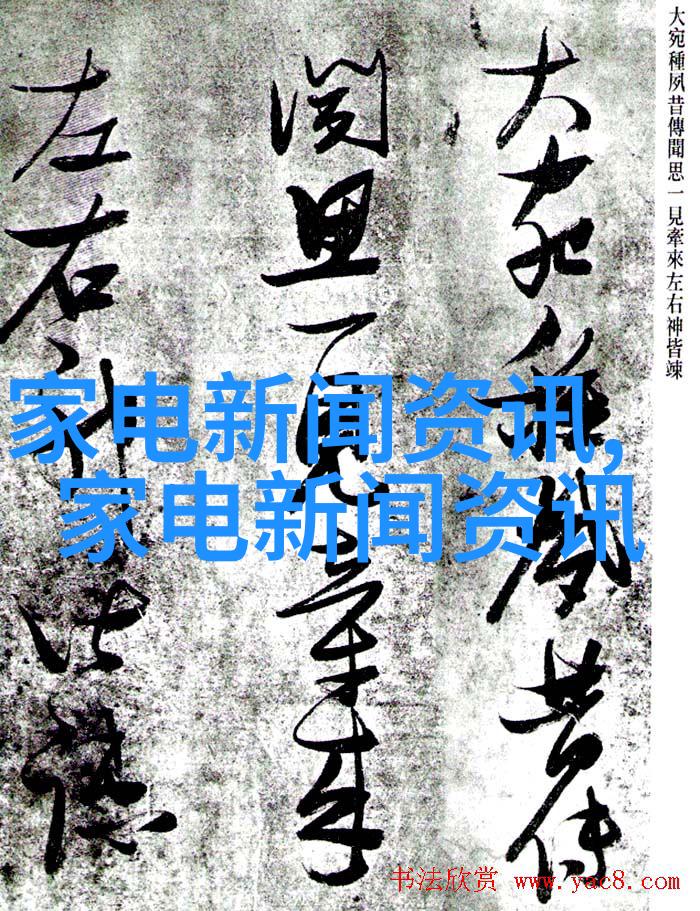 大宛種夙昔傳聞思一見牽來左右神皆竦
大宛種夙昔傳
聞思一見牽來
左右神皆竦
家电新闻资讯,
家电新闻资讯
书法欣赏 www.yac8.com